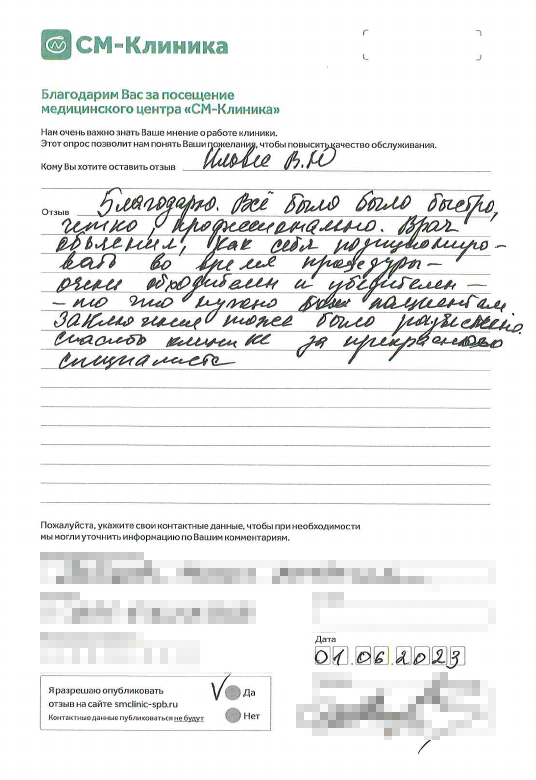 СМ-Клиника
Благодарим Вас за посещение
медицинского центра «СМ-Клиника»
Нам очень важно знать Ваше мнение о работе клиники.
Этот опрос позволит нам понять Ваши пожелания, чтобы повысить качество обслуживания.
Кому Вы хотите оставить отзыв В.Ю
Отзыв Благодарю. Всё было было быстро,
четко, профессионально. Врач
объяснил, как себя позициониро-
вать во время процедуры-
очень обходителен и убедителен -
- то что нужно пациентам
Заключения тоже было разъяснено.
спасибо клинике за прекрасного
специалиста
Пожалуйста, укажите свои контактные данные, чтобы при необходимости
мы могли уточнить информацию по Вашим комментариям.
Дата
01.06.2023
Я разрешаю опубликовать
отзыв на сайте smclinic-spb.ru
Контактные данные публиковаться не будут
V Да
Нет